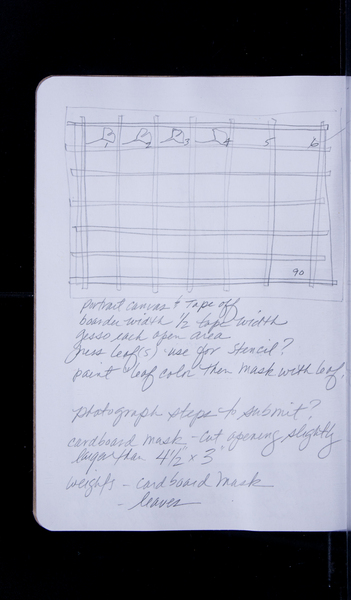 1 2 3 4 5 6
90
portrait canvas + Tape off
boarder width 1/2 tape width
gesso each open area
press leaf(s) use for stencil?
paint leaf color then mask with leaf.
photograph steps to submit?
cardboard mask - cut opening slightly
larger than 4 1/2" x 3"
weights - cardboard mask
- leaves